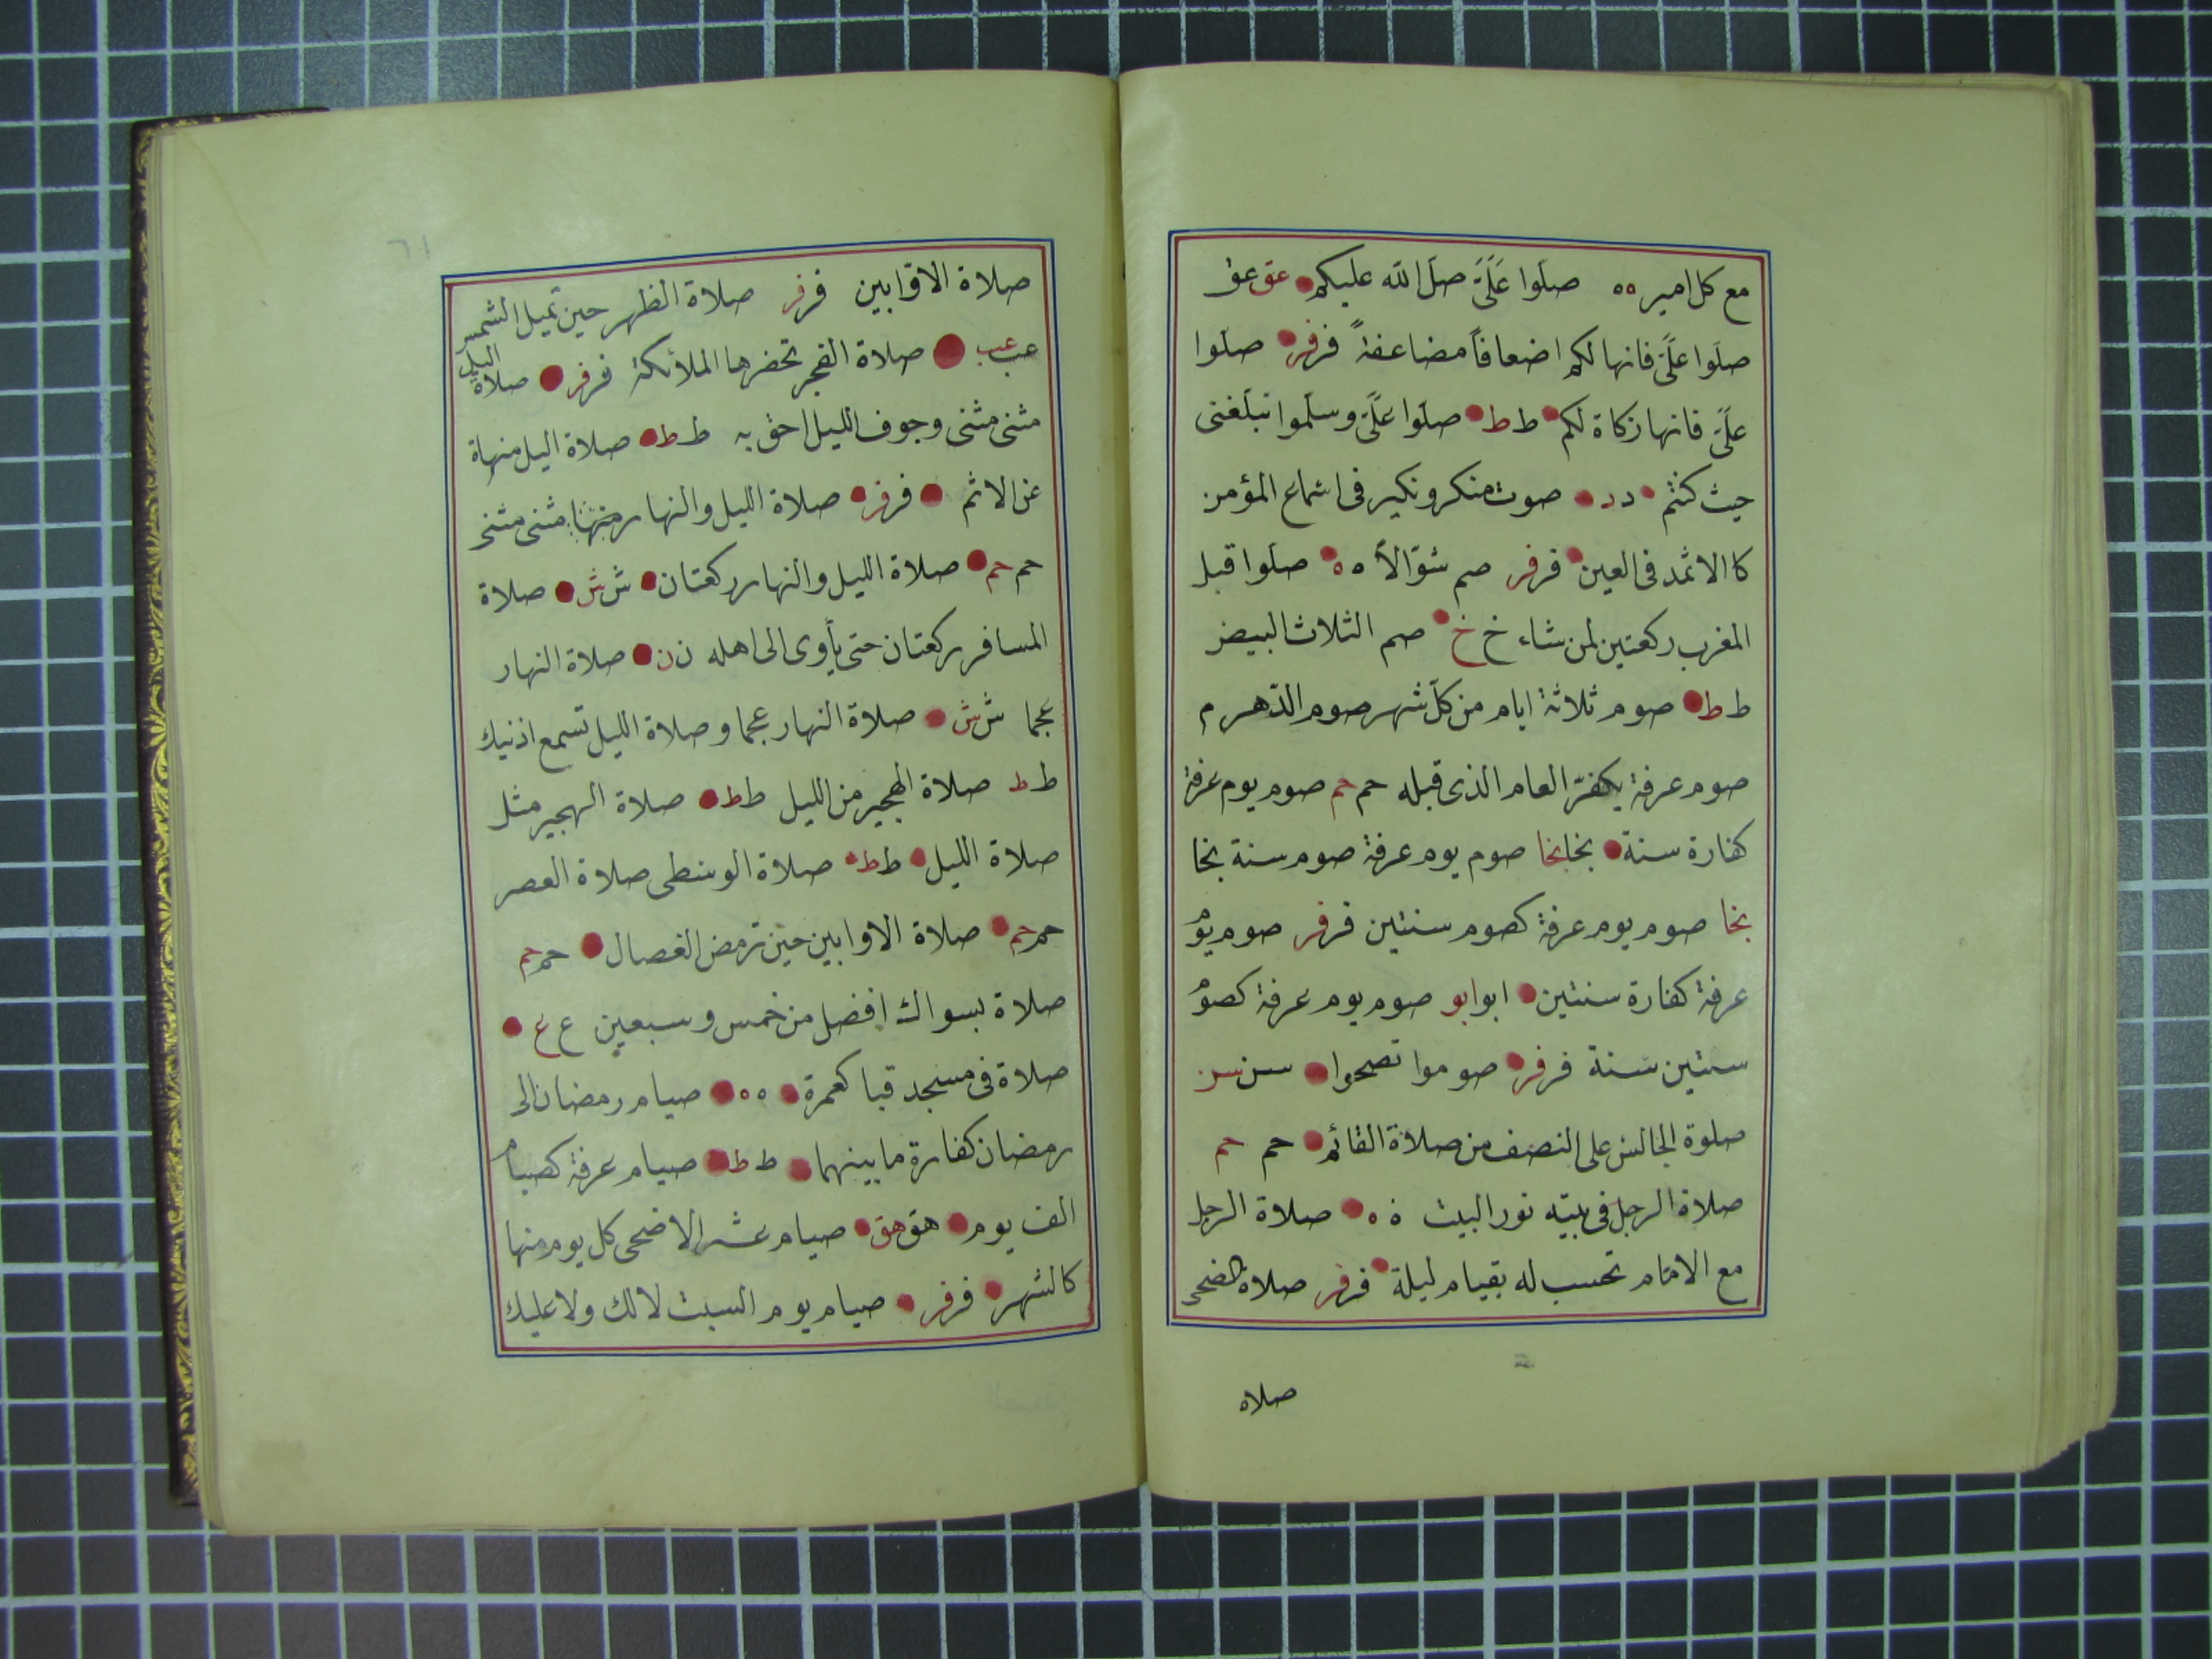 مع كل امير ٥٥ صلّوا عَلَىَّ صلى الله عليكم عق عق
صلّوا علىَّ فانها لكم اضعافاً مضاعفةً فر فر صلّوا
علىَّ فانها زكاة لكم ط ط صلّوا علىَّ وسلّموا تبلغنى
حيث كنتم د د صوت منكر ونكير فى اسماع المؤمن
كا الاثمد فى العين فر فر صم شوّالاً ه ه صلّوا قبل
المغرب ركعتين لمن شاء خ خ صم الثلاث البيض
ط ط صوم ثلاثة ايام من كلّ شهر صوم الدّهر م
صوم عرفة يكفّر العام الذى قبله حم حم صوم يوم عرفة
كفارة سنة نخا نخا صوم يوم عرفة صوم سنة نخا
نخا صوم يوم عرفة كصوم سنتين فر فر صوم يوم
عرفة كفارة سنتين ابو ابو صوم يوم عرفة كصوم
ستين سنة فر فر صوموا تصحوا سن سن
صلوة الجالس على النصف من صلاة القائم حم حم
صلاة الرجل فى بيته نور البيت ه ه صلاة الرجل
مع الامام تحسب له بقيام ليلة فر فر صلاة الضحى
صلاه
٦١
صلاة الاوّابين فر فر صلاة الظهر حين تميل الشمس
عب عب صلاة الفجر تحضرها الملائكة فر فر صلاة اليل
مثنى مثنى وجوف الليل احق به ط ط صلاة اليل منهاة
عن الاثم فر فر صلاة الليل والنهار مثنى مثنى
حم حم صلاة الليل والنهار ركعتان ش ش صلاة
المسافر ركعتان حتى يأوى الى اهله ن ن صلاة النهار
عجما ش ش صلاة النهار عجما وصلاة الليل تسمع اذنيك
ط ط صلاة الهجير من الليل ط ط صلاة الهجير مثل
صلاة الليل ط ط صلاة الوسطى صلاة العصر
حم حم صلاة الاوابين حين ترمض الفصال حم حم
صلاة بسواك افضل من خمس وسبعين ع ع
صلاة فى مسجد قبا كعمرة ه ه صيام رمضان الى
رمضان كفارة ما بينهما ط ط صيام عرفة كصيام
الف يوم هق هق صيام عشر الاضحى كل يوم منها
كالشهر فر فر صيام يوم السبت لا لك ولا عليك